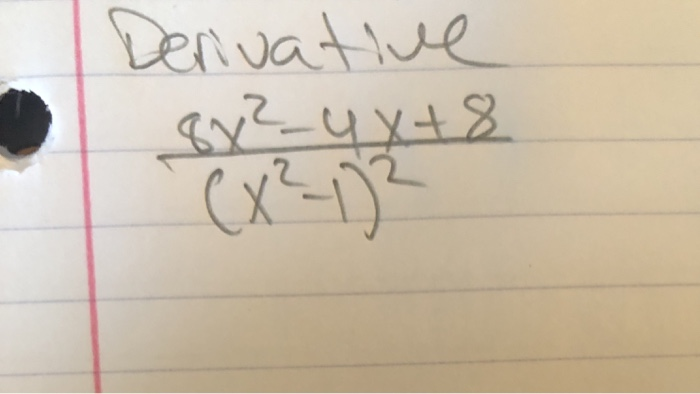 Derivative
8x²-4x+8
(x²-1)²